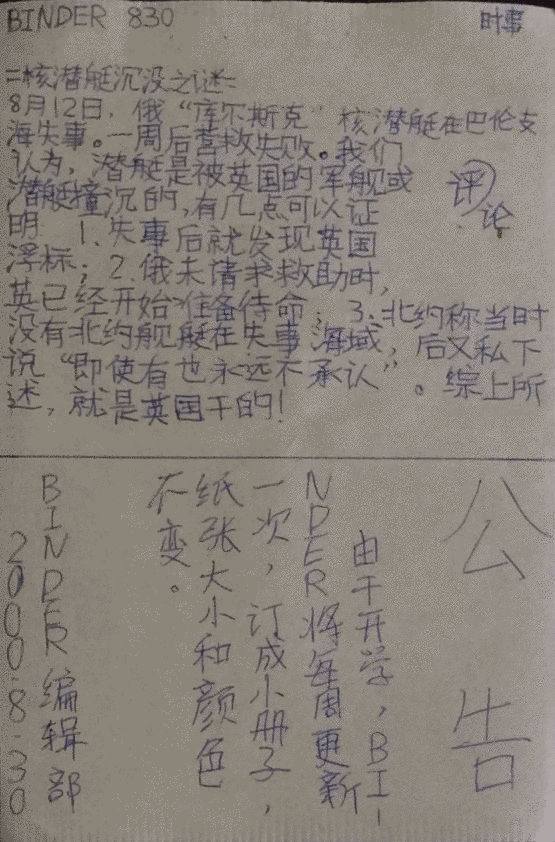 BINDER 830
时事
=核潜艇沉没之谜=
8月12日，俄“库尔斯克”核潜艇在巴伦支
海失事。一周后营救失败。我们
认为，潜艇是被英国的军舰或
潜艇撞沉的，有几点可以证
明：1.失事后就发现英国
浮标；2.俄未请求救助时，
英已经开始准备待命；3.北约称当时
没有北约舰艇在失事海域，后又私下
说“即使有也永远不承认”。综上所
述，就是英国干的！
评论
公告
由于开学，BI-
NDER将每周更新
一次，订成小册子，
纸张大小和颜色
不变。
BINDER编辑部
2000.8.30